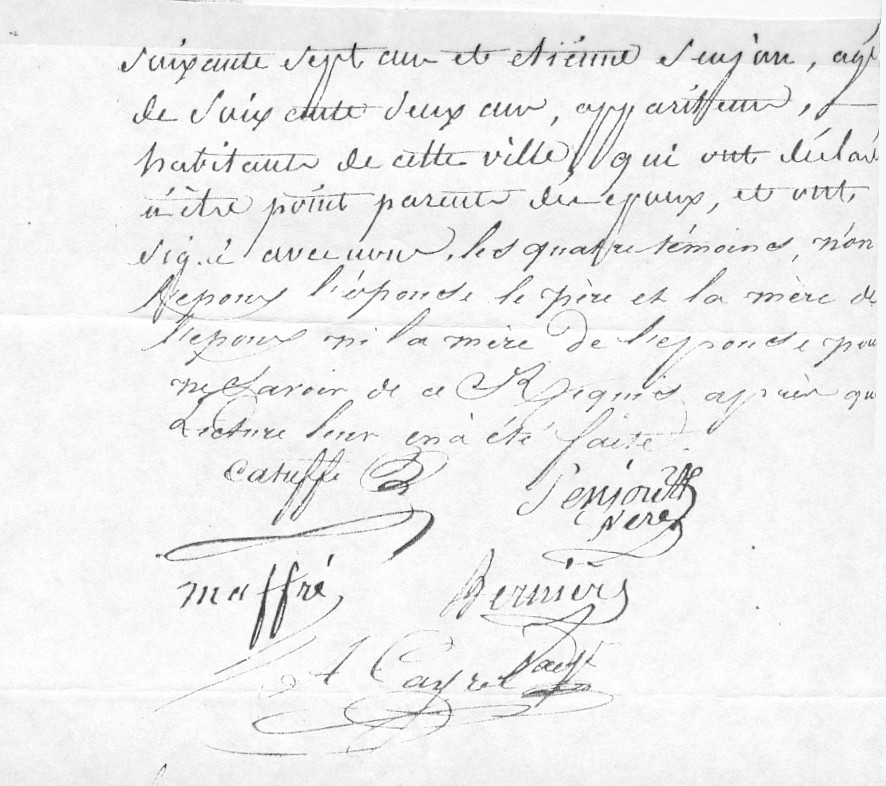 soixante sept ans et etiénne Senjou, agé
de soixante deux ans, appariteur,
habitants de cette ville, qui ont déclaré
n'être point parents des epoux, et ont
signé avec nous, les quatre témoins, non
l'epoux l'épouse le père et la mère de
l'epoux ni la mère de l'epouse pour
ne savoir de ce Requis après que
Lecture leur en à été faite.
Catuffe Senjou
Père
maffré Vernière
A Cayrel adjt